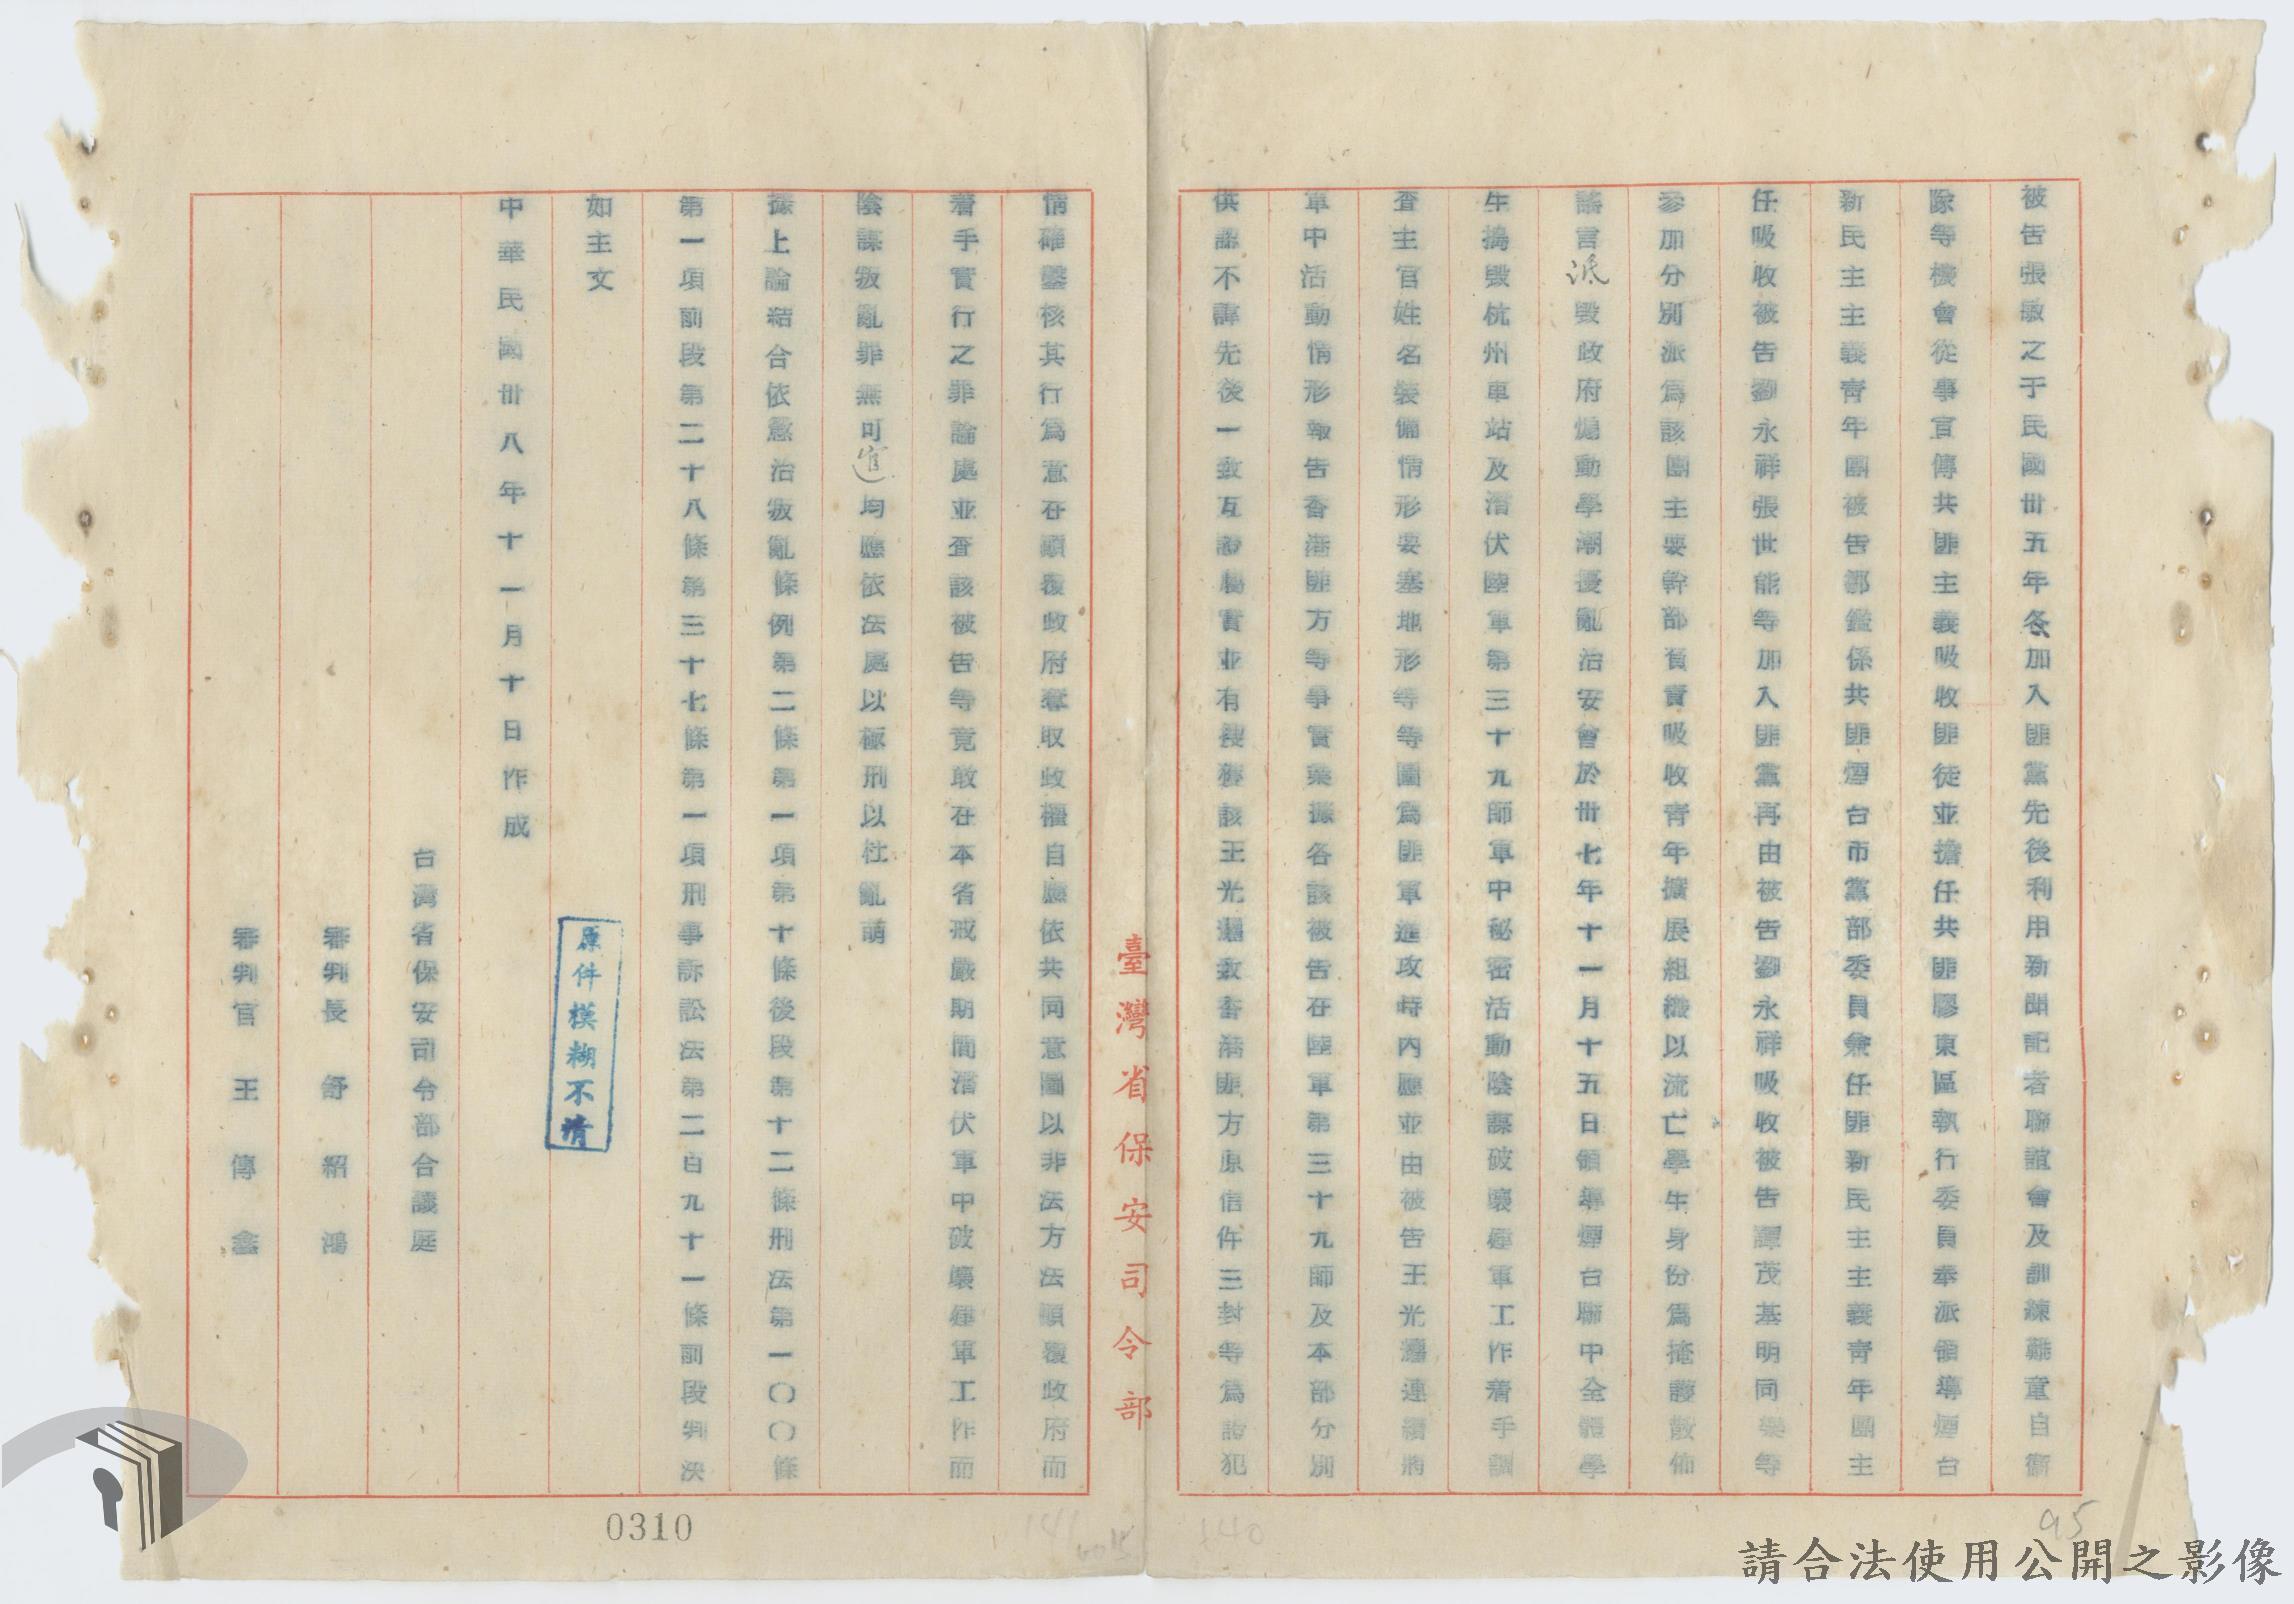 被告張敏之于民國卅五年冬加入匪黨先後利用新聞記者聯誼會及訓練難童自衞
隊等機會從事宣傳共匪主義吸收匪徒並擔任共匪膠東區執行委員奉派領導煙台
新民主主義青年團被告鄒鑑係共匪煙台市黨部委員兼任匪新民主主義青年團主
任吸收被告劉永祥張世能等加入匪黨再由被告劉永祥吸收被告譚茂基明同樂等
參加分別派為該團主要幹部負責吸收青年擴展組織以流亡學生身份為掩護散佈
謠言詆毀政府煽動學潮擾亂治安會於卅七年十一月十五日領導煙台聯中全體學
生搗毀杭州車站及潛伏陸軍第三十九師軍中秘密活動陰謀破壞建軍工作着手調
查主官姓名裝備情形要塞地形等等圖為匪軍進攻時內應並由被告王光耀連續將
軍中活動情形報告香港匪方等事實業據各該被告在陸軍第三十九師及本部分別
供認不諱先後一致互證屬實並有搜獲該王光耀致香港匪方原信件三封等為證犯
臺灣省保安司令部
情確鑿核其行為意在顛覆政府奪取政權自應依共同意圖以非法方法顛覆政府而
着手實行之罪論處並查該被告等竟敢在本省戒嚴期間潛伏軍中破壞建軍工作而
陰謀叛亂罪無可逭均應依法處以極刑以杜亂萌
據上論結合依懲治叛亂條例第二條第一項第十條後段第十二條刑法第一〇〇條
第一項前段第二十八條第三十七條第一項刑事訴訟法第二百九十一條前段判決
如主文
原件模糊不清
中華民國卅八年十一月十日作成
台灣省保安司令部合議庭
審判長 舒紹鴻
審判官 王傳鑫
0310
141
140
95
請合法使用公開之影像